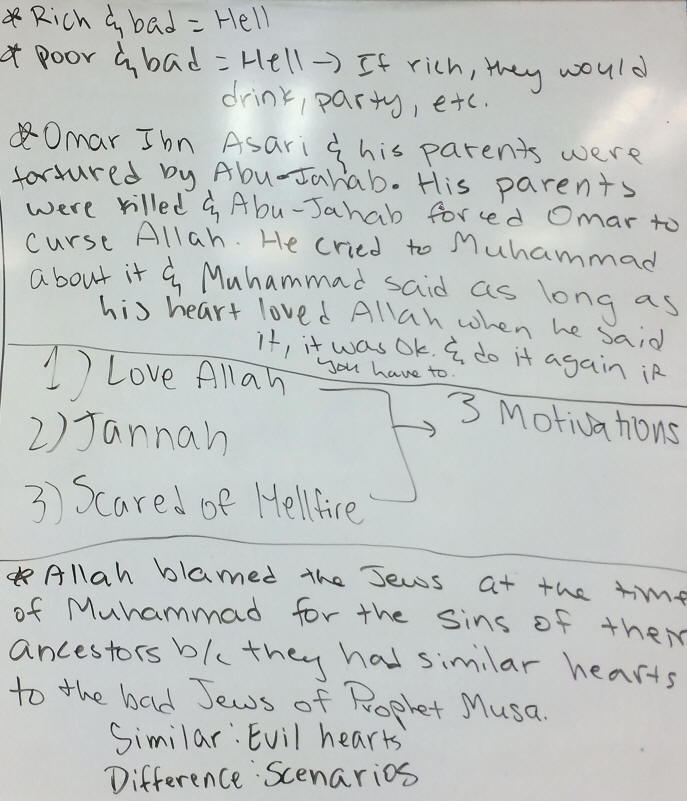 * Rich & bad = Hell
* Poor & bad = Hell → If rich, they would
drink, party, etc.
* Omar Ibn Asari & his parents were
tortured by Abu-Jahab. His parents
were killed & Abu-Jahab forced Omar to
curse Allah. He cried to Muhammad
about it & Muhammad said as long as
his heart loved Allah when he said
it, it was Ok. & do it again if
you have to.
1) Love Allah
2) Jannah
3) Scared of Hellfire
→ 3 Motivations
* Allah blamed the Jews at the time
of Muhammad for the sins of their
ancestors b/c they had similar hearts
to the bad Jews of Prophet Musa.
Similar: Evil hearts
Difference: Scenarios